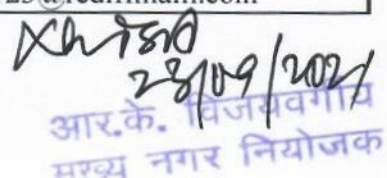 23@rediffmail.com
23/09/2021
आर.के. विजयवर्गीय
मुख्य नगर नियोजक